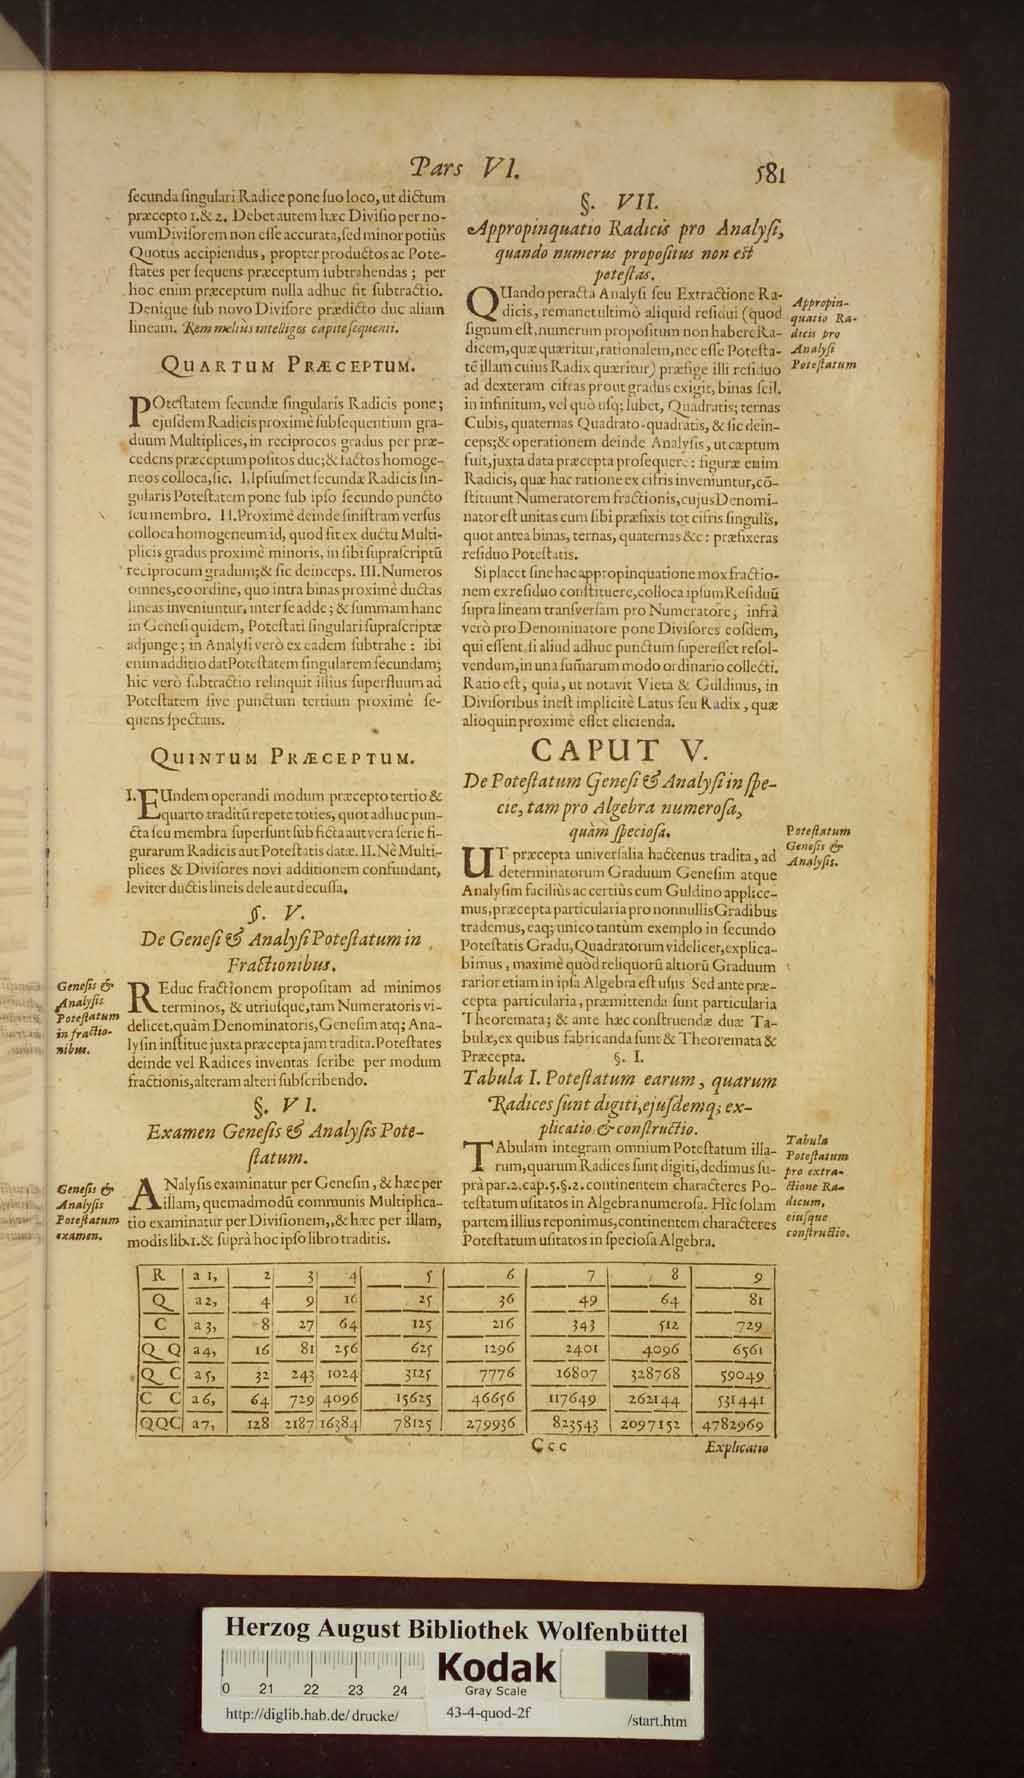 Pars VI.
581
secunda singulari Radice pone suo loco, ut dictum
præcepto 1. & 2. Debet autem hæc Divisio per no-
vum Divisorem non esse accurata, sed minor potiùs
Quotus accipiendus, propter productos ac Pote-
states per sequens præceptum subtrahendas; per
hoc enim præceptum nulla adhuc fit subtractio.
Denique sub novo Divisore prædicto duc aliam
lineam. Rem meliùs intelliges capite sequenti.
QUARTUM PRÆCEPTUM.
POtestatem secundæ singularis Radicis pone;
ejusdem Radicis proximè subsequentium gra-
duum Multiplices, in reciprocos gradus per præ-
cedens præceptum positos duc; & factos homoge-
neos colloca, sic. I. Ipsiusmet secundæ Radicis sin-
gularis Potestatem pone sub ipso secundo puncto
seu membro. II. Proximè deinde sinistram versus
colloca homogeneum id, quod fit ex ductu Multi-
plicis gradus proximè minoris, in sibi suprascriptū
reciprocum gradum; & sic deinceps. III. Numeros
omnes, eo ordine, quo intra binas proximè ductas
lineas inveniuntur, inter se adde; & summam hanc
in Genesi quidem, Potestati singulari suprascriptæ
adjunge; in Analysi verò ex eadem subtrahe: ibi
enim additio dat Potestatem singularem secundam;
hic verò subtractio relinquit illius superfluum ad
Potestatem sive punctum tertium proximè se-
quens spectans.
QUINTUM PRÆCEPTUM.
I. EUndem operandi modum præcepto tertio &
quarto traditū repete toties, quot adhuc pun-
cta seu membra supersunt sub ficta aut vera serie fi-
gurarum Radicis aut Potestatis datæ. II. Nè Multi-
plices & Divisores novi additionem confundant,
leviter ductis lineis dele aut decussa.
§. V.
De Genesi & Analysi Potestatum in
Fractionibus.
Genesis &
Analysis
Potestatum
in fractio-
nibus.
REduc fractionem propositam ad minimos
terminos, & utriusque, tam Numeratoris vi-
delicet, quàm Denominatoris, Genesim atq; Ana-
lysin institue juxta præcepta jam tradita. Potestates
deinde vel Radices inventas scribe per modum
fractionis, alteram alteri subscribendo.
§. VI.
Examen Genesis & Analysis Pote-
statum.
Genesis &
Analysis
Potestatum
examen.
ANalysis examinatur per Genesin, & hæc per
illam, quemadmodū communis Multiplica-
tio examinatur per Divisionem,, & hæc per illam,
modis lib. 1. & suprà hoc ipso libro traditis.
§. VII.
Appropinquatio Radicis pro Analysi,
quando numerus propositus non est
potestas.
Appropin-
quatio Ra-
dicis pro
Analysi
Potestatum
QUando peracta Analysi seu Extractione Ra-
dicis, remanet ultimò aliquid residui (quod
signum est, numerum propositum non habere Ra-
dicem, quæ quæritur, rationalem, nec esse Potesta-
tē illam cuius Radix quæritur) præfige illi residuo
ad dexteram cifras prout gradus exigit, binas scil.
in infinitum, vel quò usq; lubet, Quadratis; ternas
Cubis, quaternas Quadrato-quadratis, & sic dein-
ceps; & operationem deinde Analysis, ut cæptum
fuit, juxta data præcepta prosequere: figuræ enim
Radicis, quæ hac ratione ex cifris inveniuntur, cō-
stituunt Numeratorem fractionis, cujus Denomi-
nator est unitas cum sibi præfixis tot cifris singulis,
quot antea binas, ternas, quaternas &c: præfixeras
residuo Potestatis.
Si placet sine hac appropinquatione mox fractio-
nem ex residuo constituere, colloca ipsum Residuū
supra lineam transversam pro Numeratore; infrà
verò pro Denominatore pone Divisores eosdem,
qui essent, si aliud adhuc punctum superesset resol-
vendum, in una sum̄arum modo ordinario collecti.
Ratio est, quia, ut notavit Vieta & Guldinus, in
Divisoribus inest implicitè Latus seu Radix, quæ
alioquin proximè esset elicienda.
CAPUT V.
De Potestatum Genesi & Analysi in spe-
cie, tam pro Algebra numerosa,
quàm speciosa.
Potestatum
Genesis &
Analysis.
UT præcepta universalia hactenus tradita, ad
determinatorum Graduum Genesim atque
Analysim faciliùs ac certiùs cum Guldino applice-
mus, præcepta particularia pro nonnullis Gradibus
trademus, eaq; unico tantùm exemplo in secundo
Potestatis Gradu, Quadratorum videlicet, explica-
bimus, maximè quòd reliquorū altiorū Graduum
rarior etiam in ipsa Algebra est usus Sed ante præ-
cepta particularia, præmittenda sunt particularia
Theoremata; & ante hæc construendæ duæ Ta-
bulæ, ex quibus fabricanda sunt & Theoremata &
Præcepta. §. I.
Tabula I. Potestatum earum, quarum
Radices sunt digiti, ejusdemq; ex-
plicatio & constructio.
Tabula
Potestatum
pro extra-
ctione Ra-
dicum,
eiusque
constructio.
TAbulam integram omnium Potestatum illa-
rum, quarum Radices sunt digiti, dedimus su-
prà par. 2. cap. 5. §. 2. continentem characteres Po-
testatum usitatos in Algebra numerosa. Hîc solam
partem illius reponimus, continentem characteres
Potestatum usitatos in speciosa Algebra.
R a 1, 2 3 4 5 6 7 8 9
Q a 2, 4 9 16 25 36 49 64 81
C a 3, 8 27 64 125 216 343 512 729
Q Q a 4, 16 81 256 625 1296 2401 4096 6561
Q C a 5, 32 243 1024 3125 7776 16807 328768 59049
C C a 6, 64 729 4096 15625 46656 117649 262144 531441
QQC a 7, 128 2187 16384 78125 279936 823543 2097152 4782969
Ccc
Explicatio
Herzog August Bibliothek Wolfenbüttel
0 21 22 23 24
Kodak
Gray Scale
http://diglib.hab.de/drucke/
43-4-quod-2f
/start.htm